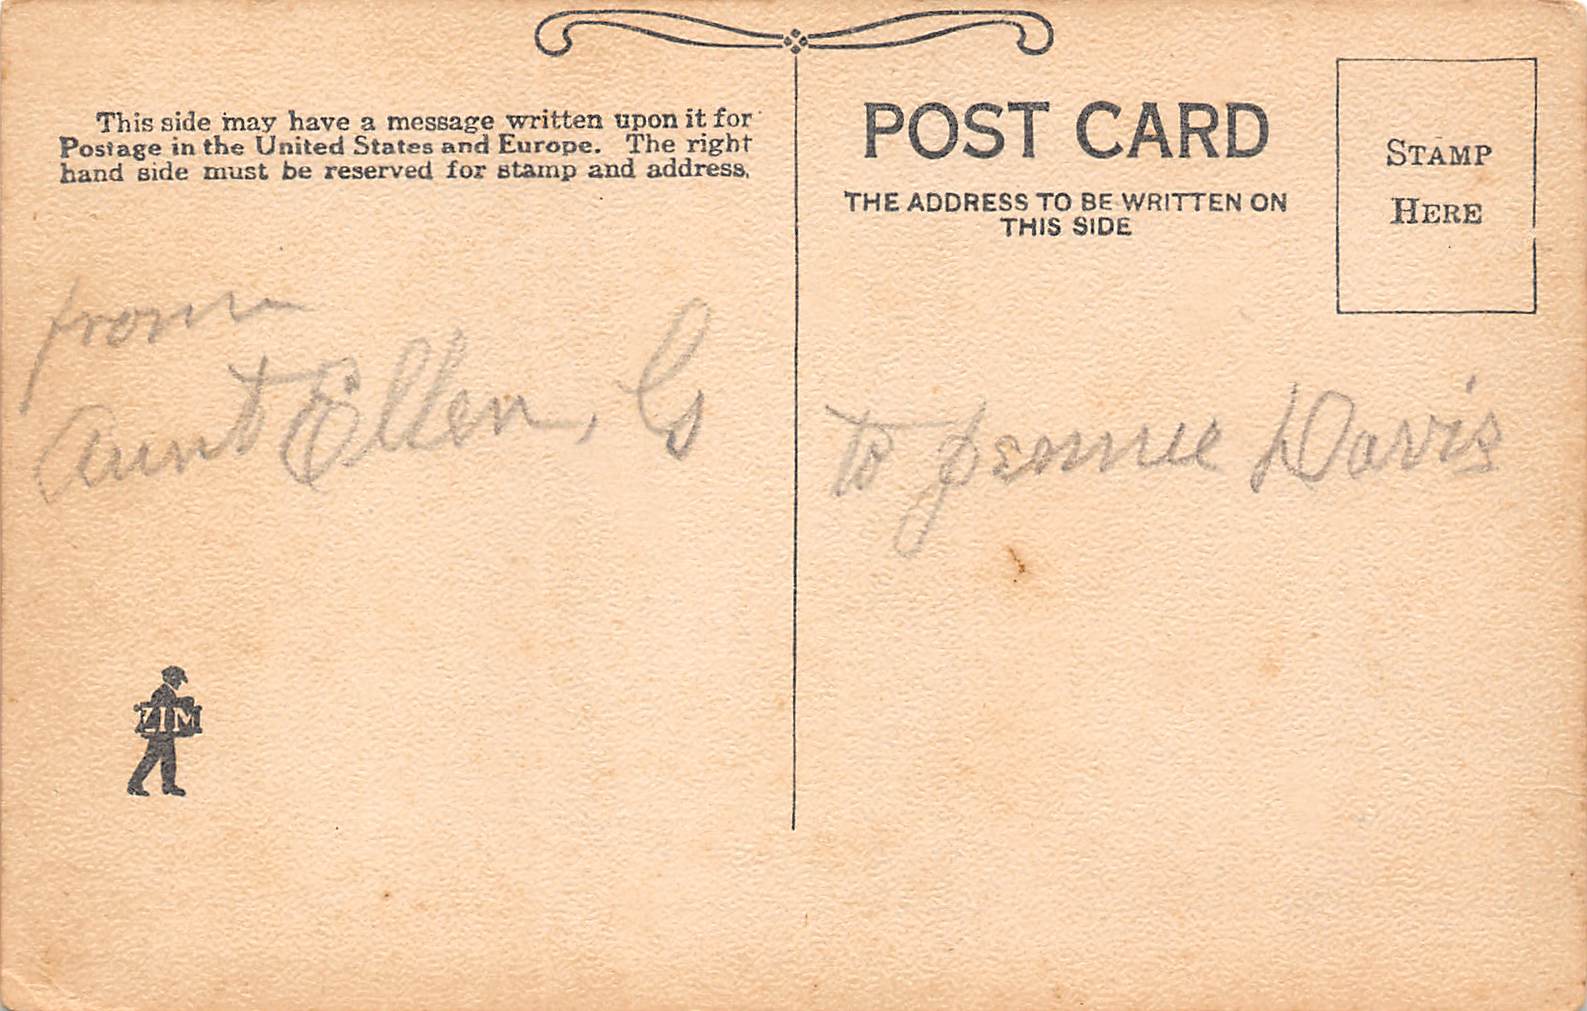 This side may have a message written upon it for
Postage in the United States and Europe. The right
hand side must be reserved for stamp and address.
from
Aunt Ellen,
ZIM
POST CARD
THE ADDRESS TO BE WRITTEN ON
THIS SIDE
STAMP
HERE
to Jennie Davis